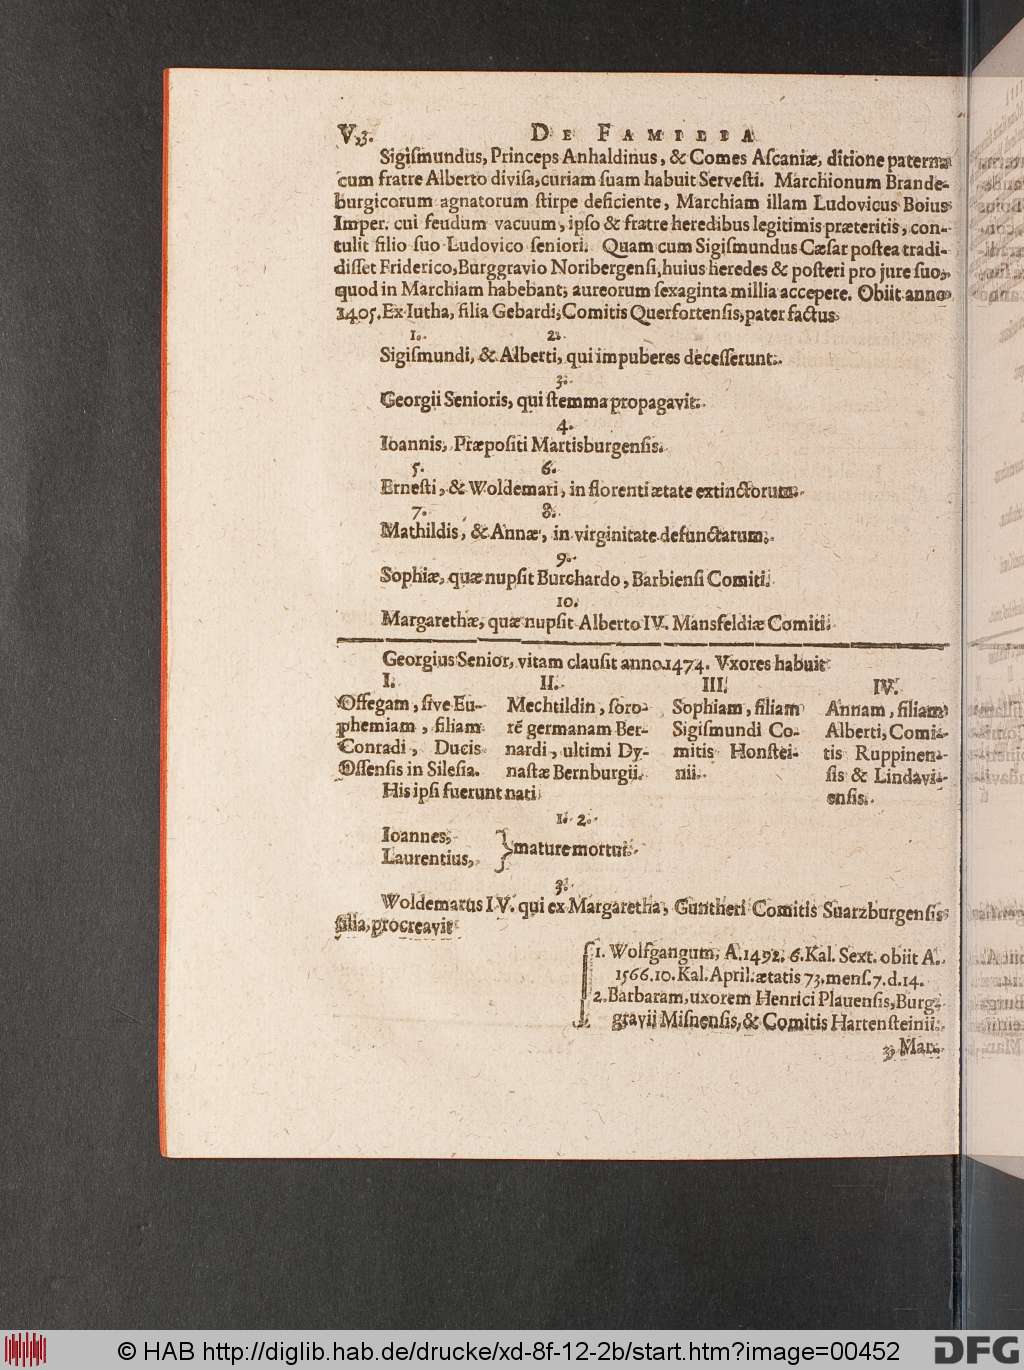 V3. DE FAMILIA
Sigiſmundus, Princeps Anhaldinus, & Comes Aſcaniæ, ditione paterna
cum fratre Alberto diviſa, curiam ſuam habuit Serveſti. Marchionum Brande-
burgicorum agnatorum ſtirpe deficiente, Marchiam illam Ludovicus Boius
Imper. cui feudum vacuum, ipſo & fratre heredibus legitimis præteritis, con-
tulit filio ſuo Ludovico ſeniori. Quam cum Sigiſmundus Cæſar poſtea tradi-
diſſet Friderico, Burggravio Noribergenſi, huius heredes & poſteri pro jure ſuo,
quod in Marchiam habebant, aureorum ſexaginta millia accepere. Obiit anno
1405. Ex Iutha, filia Gebardi, Comitis Querfortenſis, pater factus
1. 2.
Sigiſmundi, & Alberti, qui impuberes deceſſerunt.
3.
Georgii Senioris, qui ſtemma propagavit.
4.
Ioannis, Præpoſiti Martisburgenſis.
5. 6.
Erneſti, & Woldemari, in florenti ætate extinctorum.
7. 8.
Mathildis, & Annæ, in virginitate defunctarum.
9.
Sophiæ, quæ nupſit Burchardo, Barbienſi Comiti.
10.
Margarethæ, quæ nupſit Alberto IV. Mansfeldiæ Comiti.
Georgius Senior, vitam clauſit anno 1474. Vxores habuit
I.
Offegam, ſive Eu-
phemiam, filiam
Conradi, Ducis
Oſſenſis in Sileſia.
II.
Mechtildin, ſoro-
rē germanam Ber-
nardi, ultimi Dy-
naſtæ Bernburgii.
III.
Sophiam, filiam
Sigiſmundi Co-
mitis Honſtei-
nii.
IV.
Annam, filiam
Alberti, Comi-
tis Ruppinen-
ſis & Lindavi-
enſis.
His ipſi fuerunt nati
1. 2.
Ioannes,
Laurentius, } mature mortui.
3.
Woldemarus IV. qui ex Margaretha, Guntheri Comitis Suarzburgenſis
filia, procreavit
1. Wolfgangum, A. 1492. 6. Kal. Sext. obiit A.
1566. 10. Kal. April. ætatis 73. menſ. 7. d. 14.
2. Barbaram, uxorem Henrici Plauenſis, Burg-
gravii Miſnenſis, & Comitis Hartenſteinii.
3. Mar-
© HAB http://diglib.hab.de/drucke/xd-8f-12-2b/start.htm?image=00452
DFG